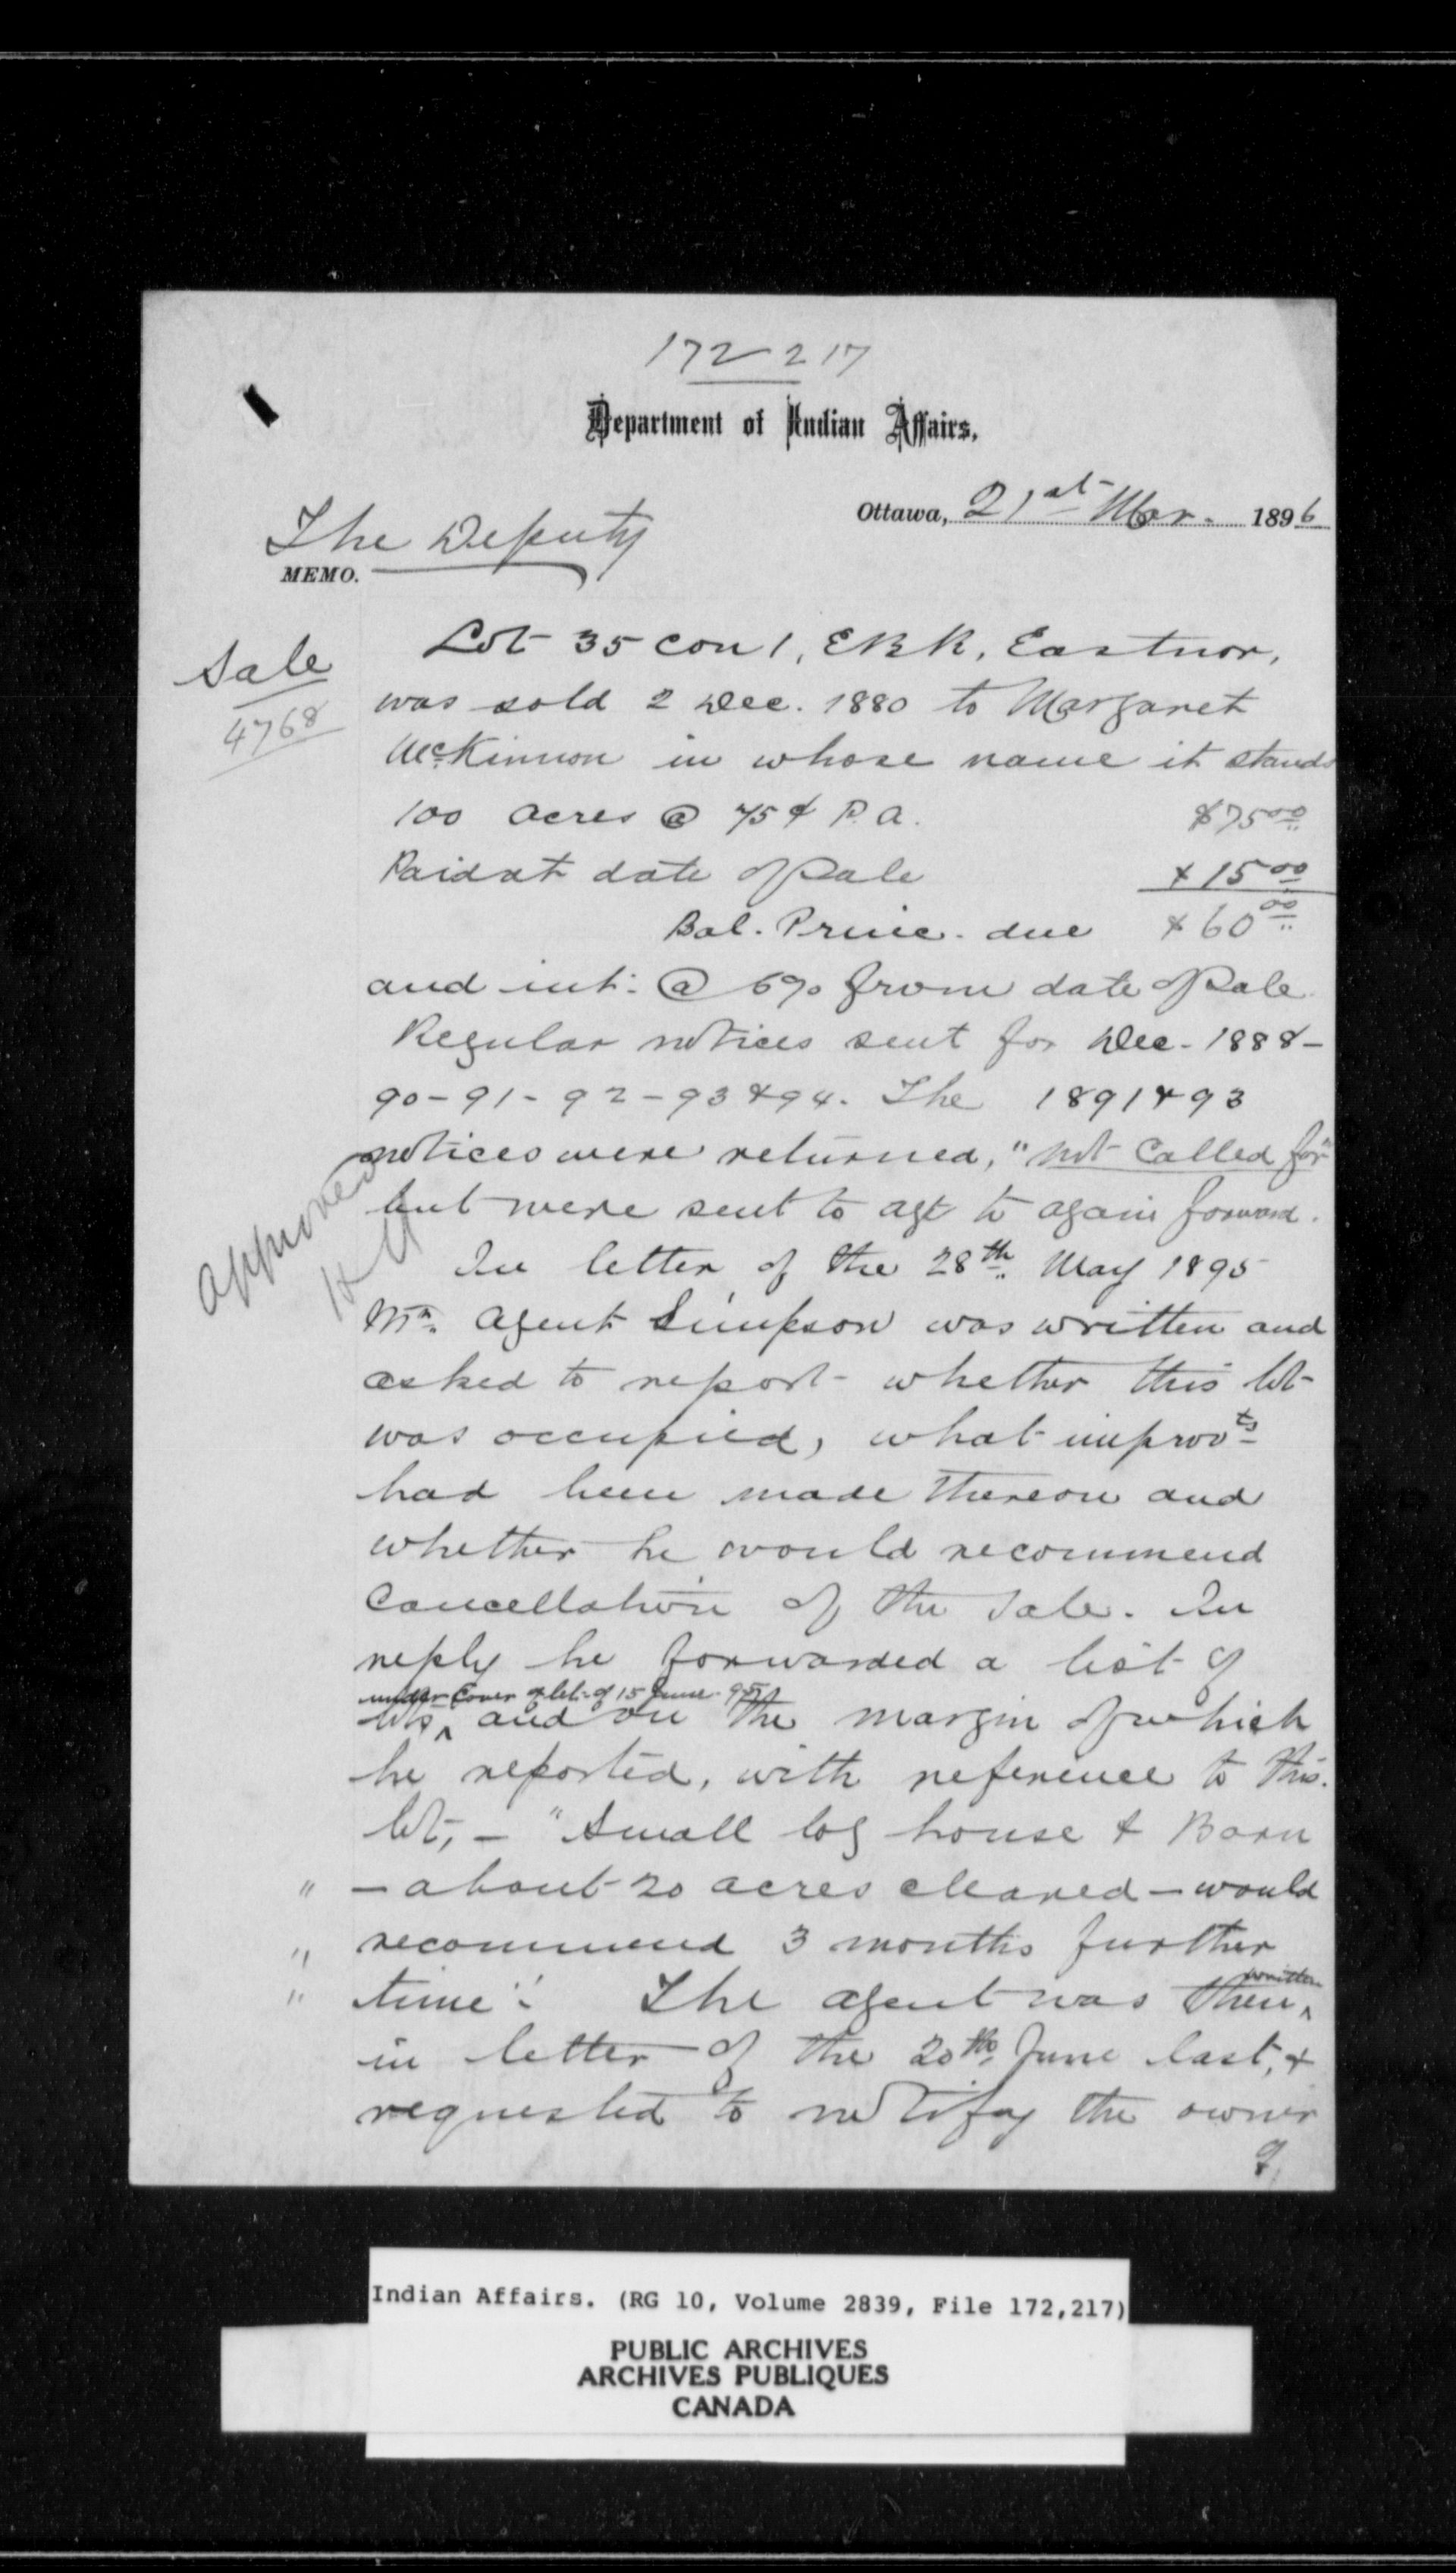 172217
Department of Indian Affairs.
Ottawa, 21st Mar. 1896
The Deputy
MEMO.
Sale
4768
Lot 35 con 1, EBR, Eastnor,
was sold 2 Dec. 1880 to Margaret
McKinnon in whose name it stands
100 acres @ 75¢ P.A. $75.00
Paid at date of Sale $15.00
Bal. Princ. due $60.00
and int. @ 6% from date of Sale.
Regular notices sent for Dec. 1888-
90-91-92-93&94. The 1891&93
notices were returned, "not called for"
but were sent to agt to again forward.
approved
In letter of the 28th May 1895
Mr. Agent Simpson was written and
asked to report whether this lot
was occupied, what improvts
had been made thereon and
whether he would recommend
Cancellation of the Sale. In
reply he forwarded a list of
under cover of let. of 15 June 95
lots, and on the margin of which
he reported, with reference to this
lot, - "Small log house & Barn
" - about 20 acres cleared - would
" recommend 3 months further
" time". The agent was then written
in letter of the 20th June last, &
requested to notify the owner
Indian Affairs. (RG 10, Volume 2839, File 172,217)
PUBLIC ARCHIVES
ARCHIVES PUBLIQUES
CANADA